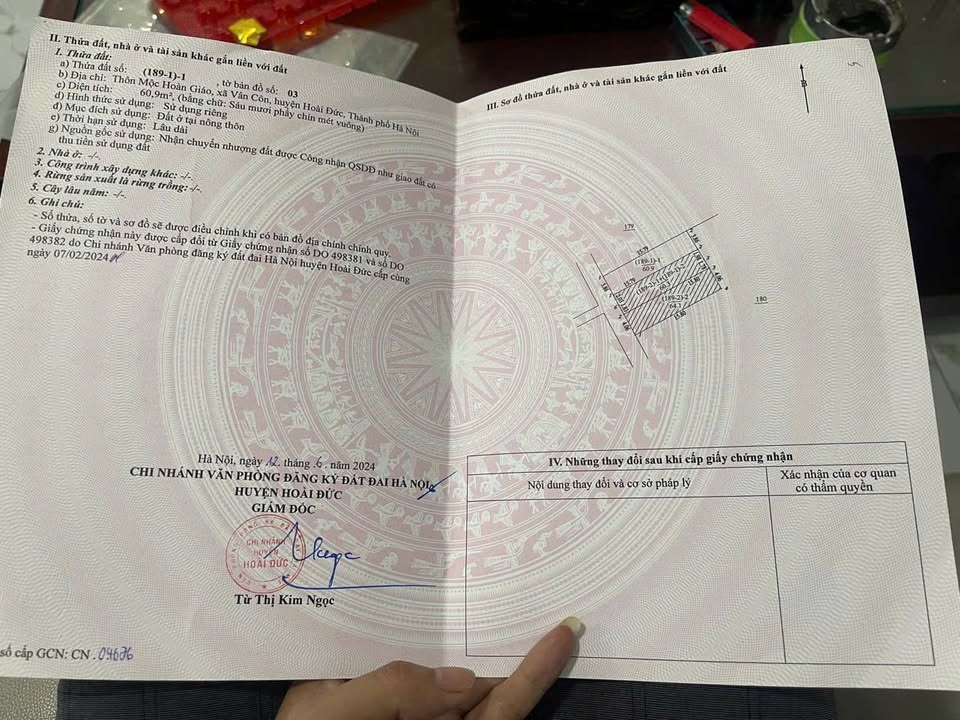 II. Thửa đất, nhà ở và tài sản khác gắn liền với đất
1. Thửa đất:
a) Thửa đất số: (189-1)-1 , tờ bản đồ số: 03
b) Địa chỉ: Thôn Mộc Hoàn Giáo, xã Vân Côn, huyện Hoài Đức, Thành phố Hà Nội
c) Diện tích: 60,9m², (bằng chữ: Sáu mươi phẩy chín mét vuông)
d) Hình thức sử dụng: Sử dụng riêng
đ) Mục đích sử dụng: Đất ở tại nông thôn
e) Thời hạn sử dụng: Lâu dài
g) Nguồn gốc sử dụng: Nhận chuyển nhượng đất được Công nhận QSDĐ như giao đất có
thu tiền sử dụng đất
2. Nhà ở: -/-
3. Công trình xây dựng khác: -/-
4. Rừng sản xuất là rừng trồng: -/-
5. Cây lâu năm: -/-
6. Ghi chú:
- Số thửa, số tờ và sơ đồ sẽ được điều chỉnh khi có bản đồ địa chính chính quy.
- Giấy chứng nhận này được cấp đổi từ Giấy chứng nhận số DO 498381 và số DO
498382 do Chi nhánh Văn phòng đăng ký đất đai Hà Nội huyện Hoài Đức cấp cùng
ngày 07/02/2024
Hà Nội, ngày 12 tháng 6 năm 2024
CHI NHÁNH VĂN PHÒNG ĐĂNG KÝ ĐẤT ĐAI HÀ NỘI
HUYỆN HOÀI ĐỨC
GIÁM ĐỐC
CHI NHÁNH
HUYỆN
HOÀI ĐỨC
Từ Thị Kim Ngọc
số cấp GCN: CN.04636
III. Sơ đồ thửa đất, nhà ở và tài sản khác gắn liền với đất
B
179
15.79
3.86
(189-1)-1
60.9
15.79
15.80
(189-2)-2
64.1
4.06
4.06
15.80
180
IV. Những thay đổi sau khi cấp giấy chứng nhận
Nội dung thay đổi và cơ sở pháp lý
Xác nhận của cơ quan
có thẩm quyền